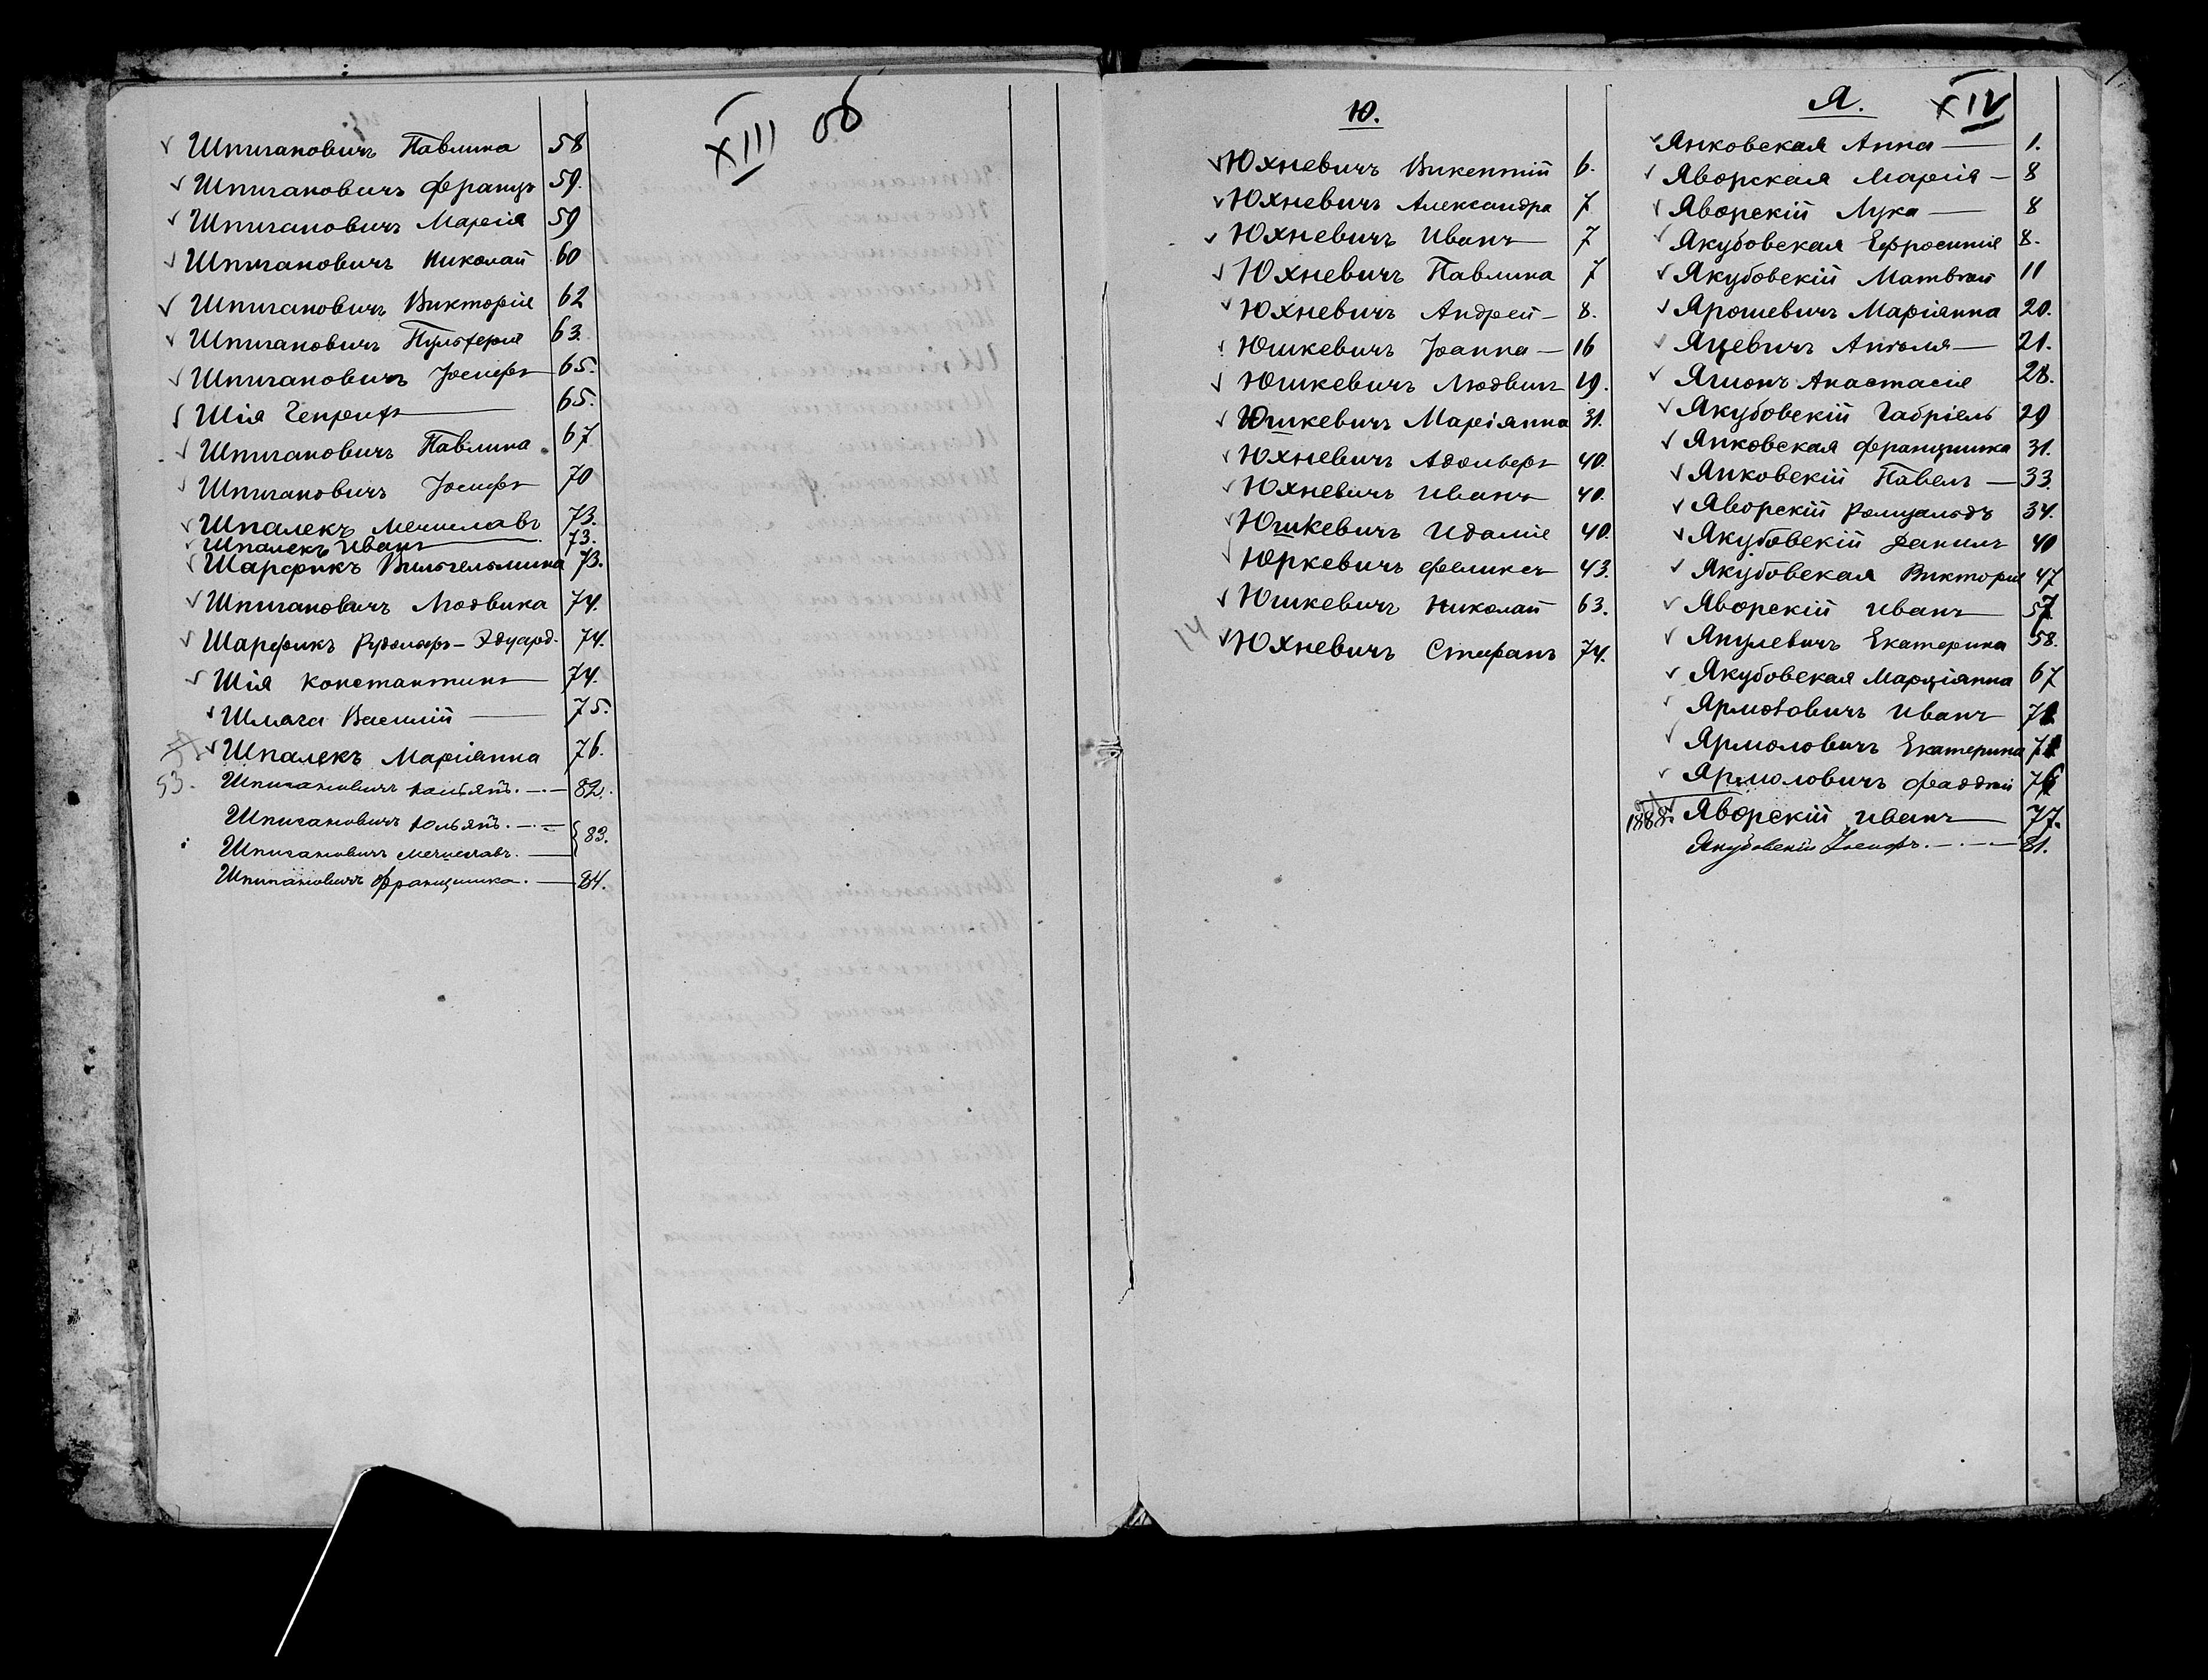 XIII об
Шпигановичъ Павлина 58
Шпигановичъ Францъ 59.
Шпигановичъ Марія 59
Шпигановичъ Николай 60
Шпигановичъ Викторія 62
Шпигановичъ Пульхерія 63.
Шпигановичъ Іосифъ 65.
Шія Генрихъ 65.
Шпигановичъ Павлина 67.
Шпигановичъ Іосифъ 70
Шпалекъ Мечиславъ 73.
Шпалекъ Иванъ 73.
Шарфикъ Вильгельмина 73.
Шпигановичъ Людвика 74.
Шарфикъ Рудольфъ-Эдуард. 74.
Шія Константинъ 74.
Шмага Василій 75.
Шпалекъ Маріанна 76.
53. Шпигановичъ 82.
Шпигановичъ 83.
Шпигановичъ Мечиславъ.
Шпигановичъ Францишка. 84.
Ю.
Юхневичъ Викентій 6.
Юхневичъ Александра 7
Юхневичъ Иванъ 7
Юхневичъ Павлина 7
Юхневичъ Андрей 8.
Юшкевичъ Іоанна 16
Юшкевичъ Людвигъ 19.
Юшкевичъ Маріанна 31.
Юхневичъ Адольфъ 40.
Юхневичъ Иванъ 40.
Юшкевичъ Идалія 40.
Юркевичъ Феликсъ 43.
Юшкевичъ Николай 63.
14 Юхневичъ Стефанъ 74.
Я. XIV
Янковская Анна 1.
Яворская Марія 8
Яворскій Лука 8
Якубовская Ефросинія 8.
Якубовскій Матвѣй 11
Ярошевичъ Маріанна 20.
Яцевичъ Анѣоля 21.
Ягиомъ Анастасія 28.
Якубовскій Габріель 29
Янковская Францишка 31.
Янковскій Павелъ 33.
Яворскій Ромуальдъ 34.
Якубовскій Данилъ 40
Якубовская Викторія 47
Яворскій Иванъ 57
Янулевичъ Екатерина 58.
Якубовская Марціанна 67
Ярмоловичъ Иванъ 71
Ярмоловичъ Екатерина 71
Ярмоловичъ Фаддѣй 76
1888. Яворскій Иванъ 77.
Якубовскій Іосифъ. 81.